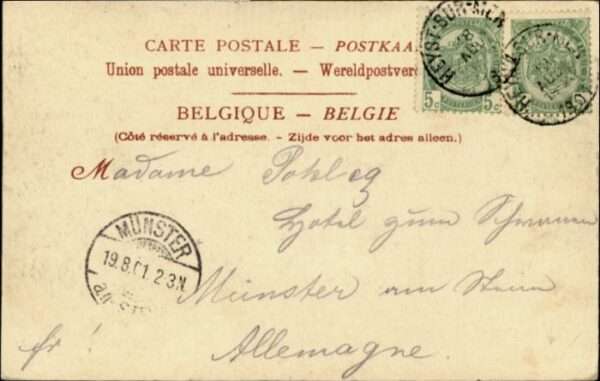 CARTE POSTALE — POSTKAA
Union postale universelle. — Wereldpostver
BELGIQUE — BELGIE
(Côté réservé à l'adresse. - Zijde voor het adres alleen.)
5c 5c
HEYST-SUR-MER
HEYST-SUR-MER
Madame Pohleg
Hotel zum Schwanen
MÜNSTER
19.8.01. 2-3N.
Münster am Stein
Allemagne.